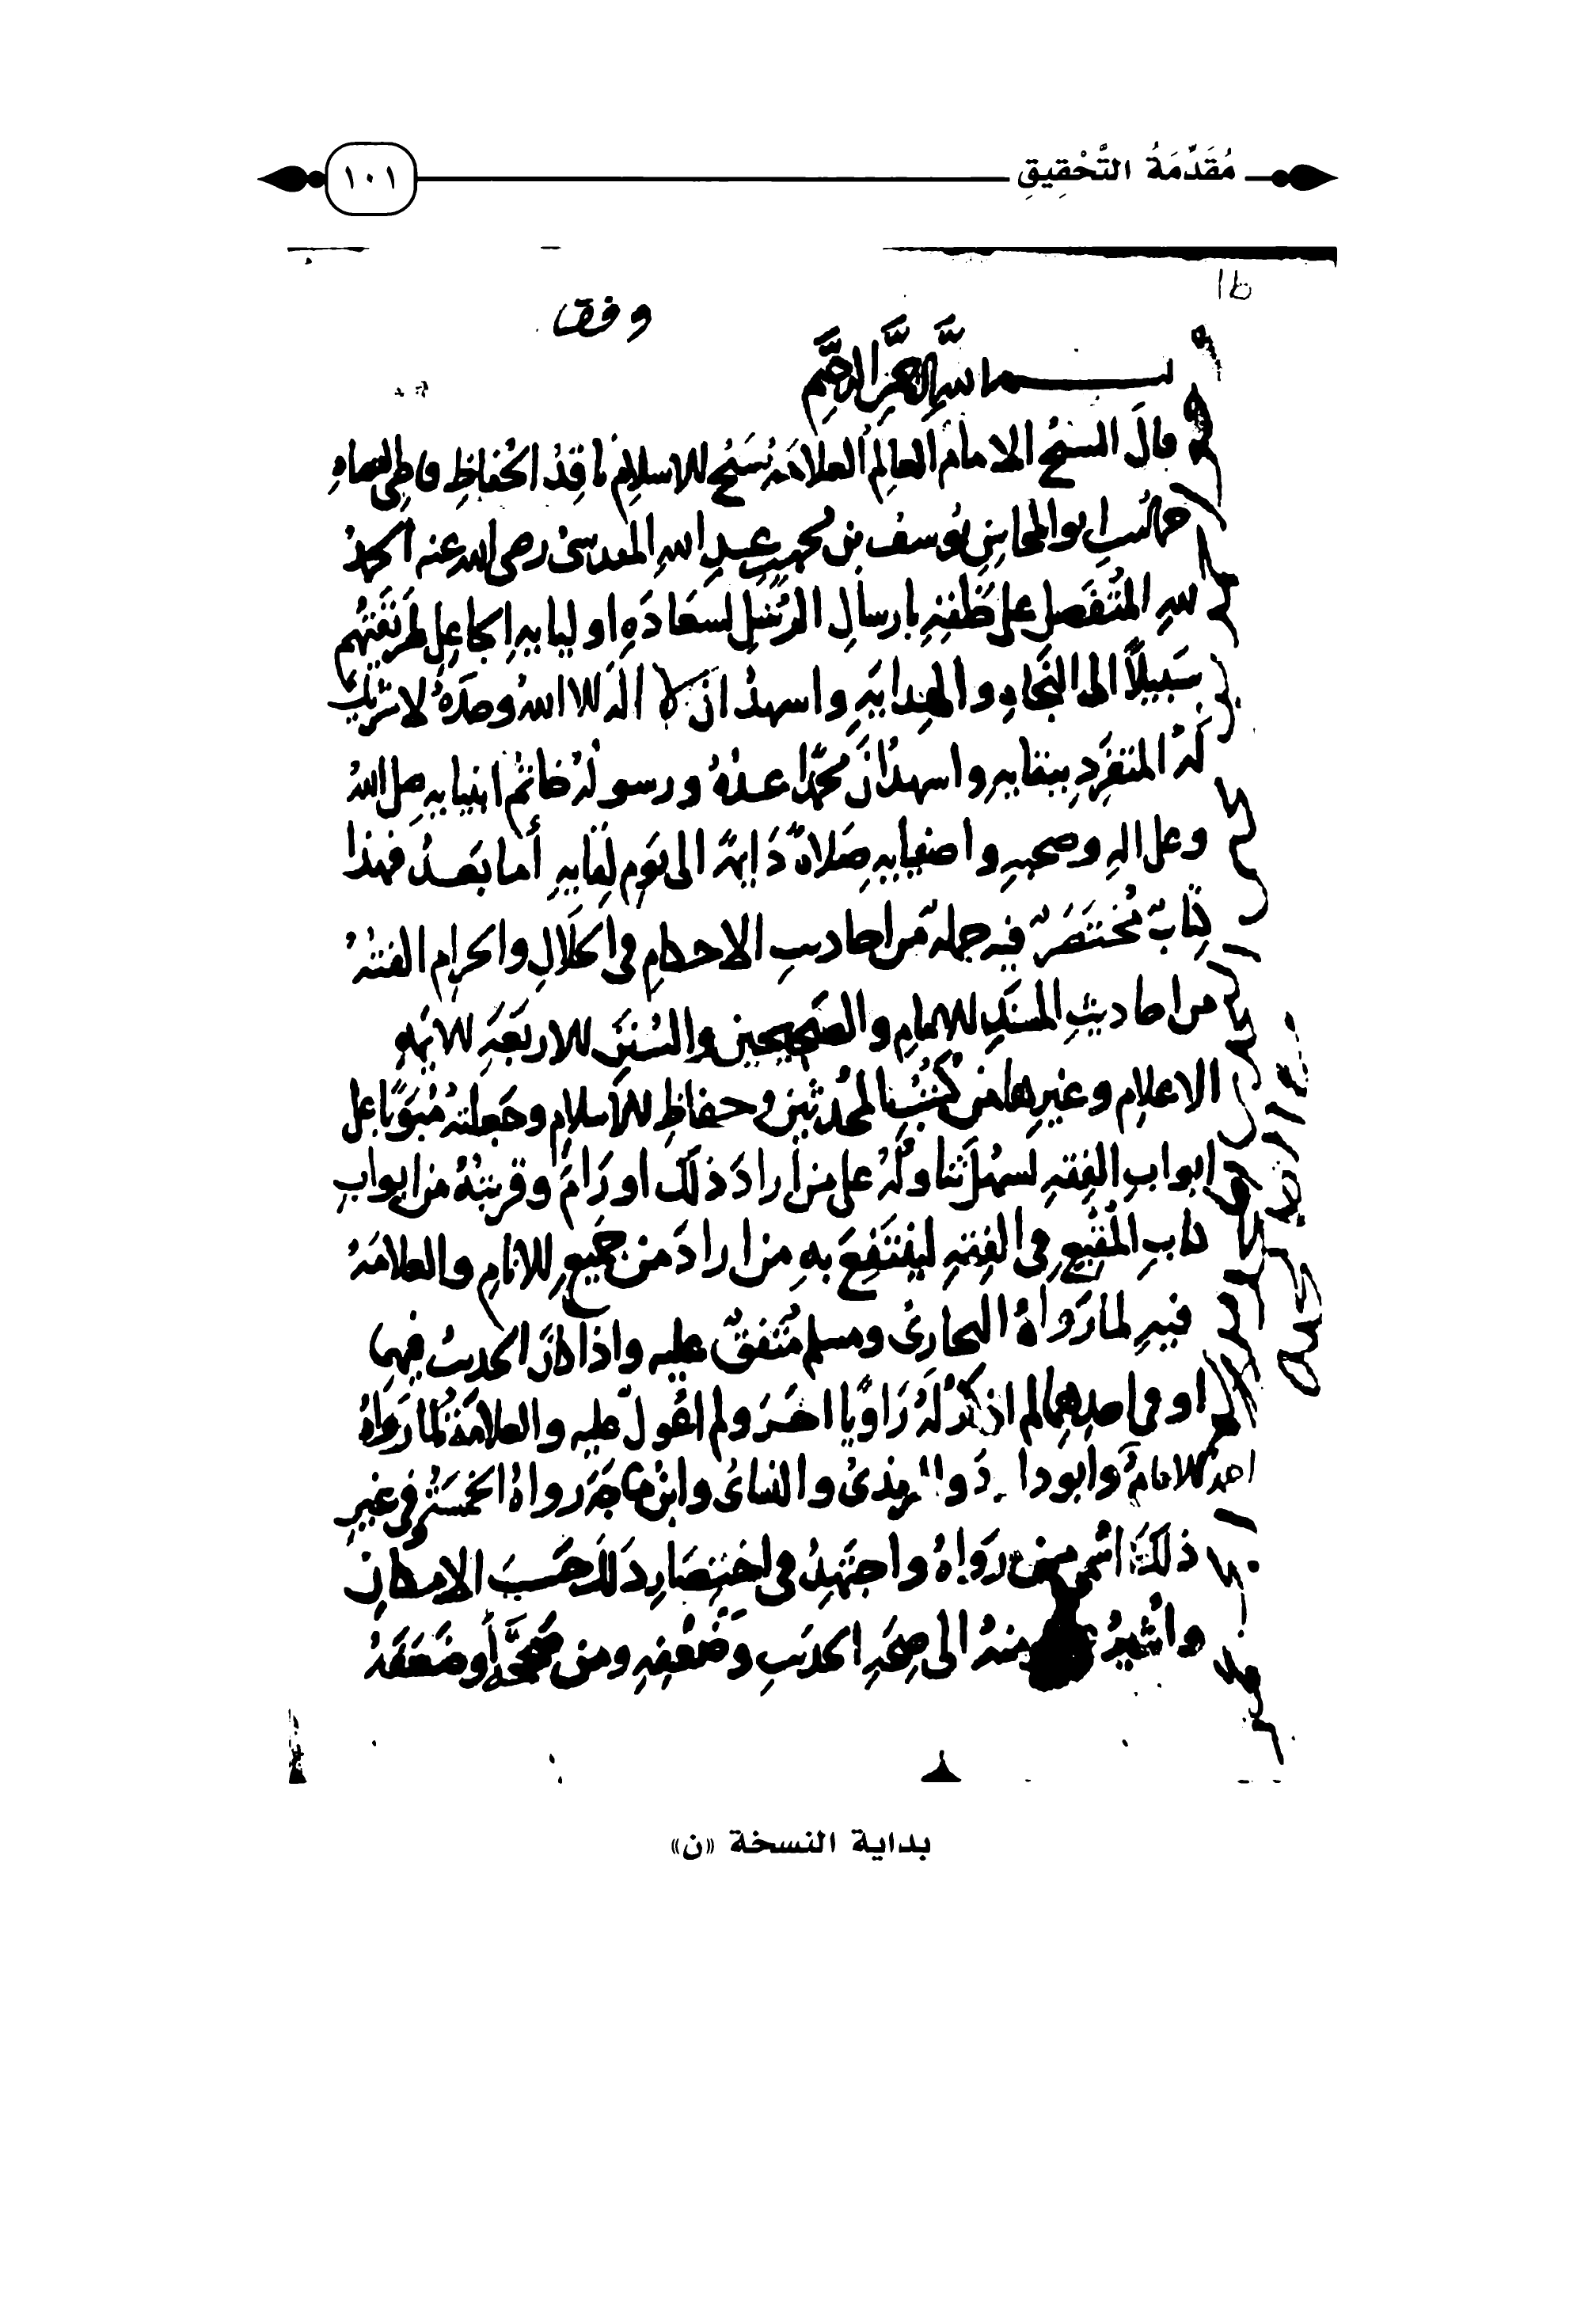 مُقَدِّمَةُ التَّحْقِيقِ
١٠١
1b
وقف
بسم الله الرحمن الرحيم
قال الشيخ الامام العالم العلامة شيخ الاسلام ناقد الحفاظ
ابو المحاسن يوسف بن محمد بن عبد الله المقدسى رضى الله عنه الحمد
لله المتفضل على خلقه بارسال الرسل لسعادة اوليايه الجاعل طريقتهم
سبيلا الى النجاة والهداية واشهد ان لا اله الا الله وحده لا شريك
له المتفرد ببقايه واشهد ان محمدا عبده ورسوله خاتم انبيايه صلى الله
وعلى اله وصحبه واصفيايه صلاة دايمة الى يوم لقايه أما بعد فهذا
كتاب مختصر فيه جملة من احاديث الاحكام فى الحلال والحرام الفته
من احاديث المسند للامام والصحيحين والسنن الاربعة للايمة
الاعلام وغيرها من كتب المحدثين وحفاظ الاسلام وجعلته مبوبا على
ابواب الفقه لسهل تناوله على من أراد ذلك او رام وقربته من ابواب
كتاب المقنع فى الفقه لينتفع به من اراد من جميع الانام والعلامة
فيه لما رواه البخارى ومسلم متفق عليه واذا كان الحديث فيهما
او فى احدهما لم اذكر له راويا اخر ولم اقول عليه والعلامة لما رواه
احمد الامام وابو داود والترمذى والنسائى وابن ماجة رواه الخمسة وفى غير
ذلك اسمى من رواه واجتهد فى اختصار ذلك حسب الامكان
واشير منه الى صحة الحديث وضعفه ومن صححه أو ضعفه
بداية النسخة «ن»